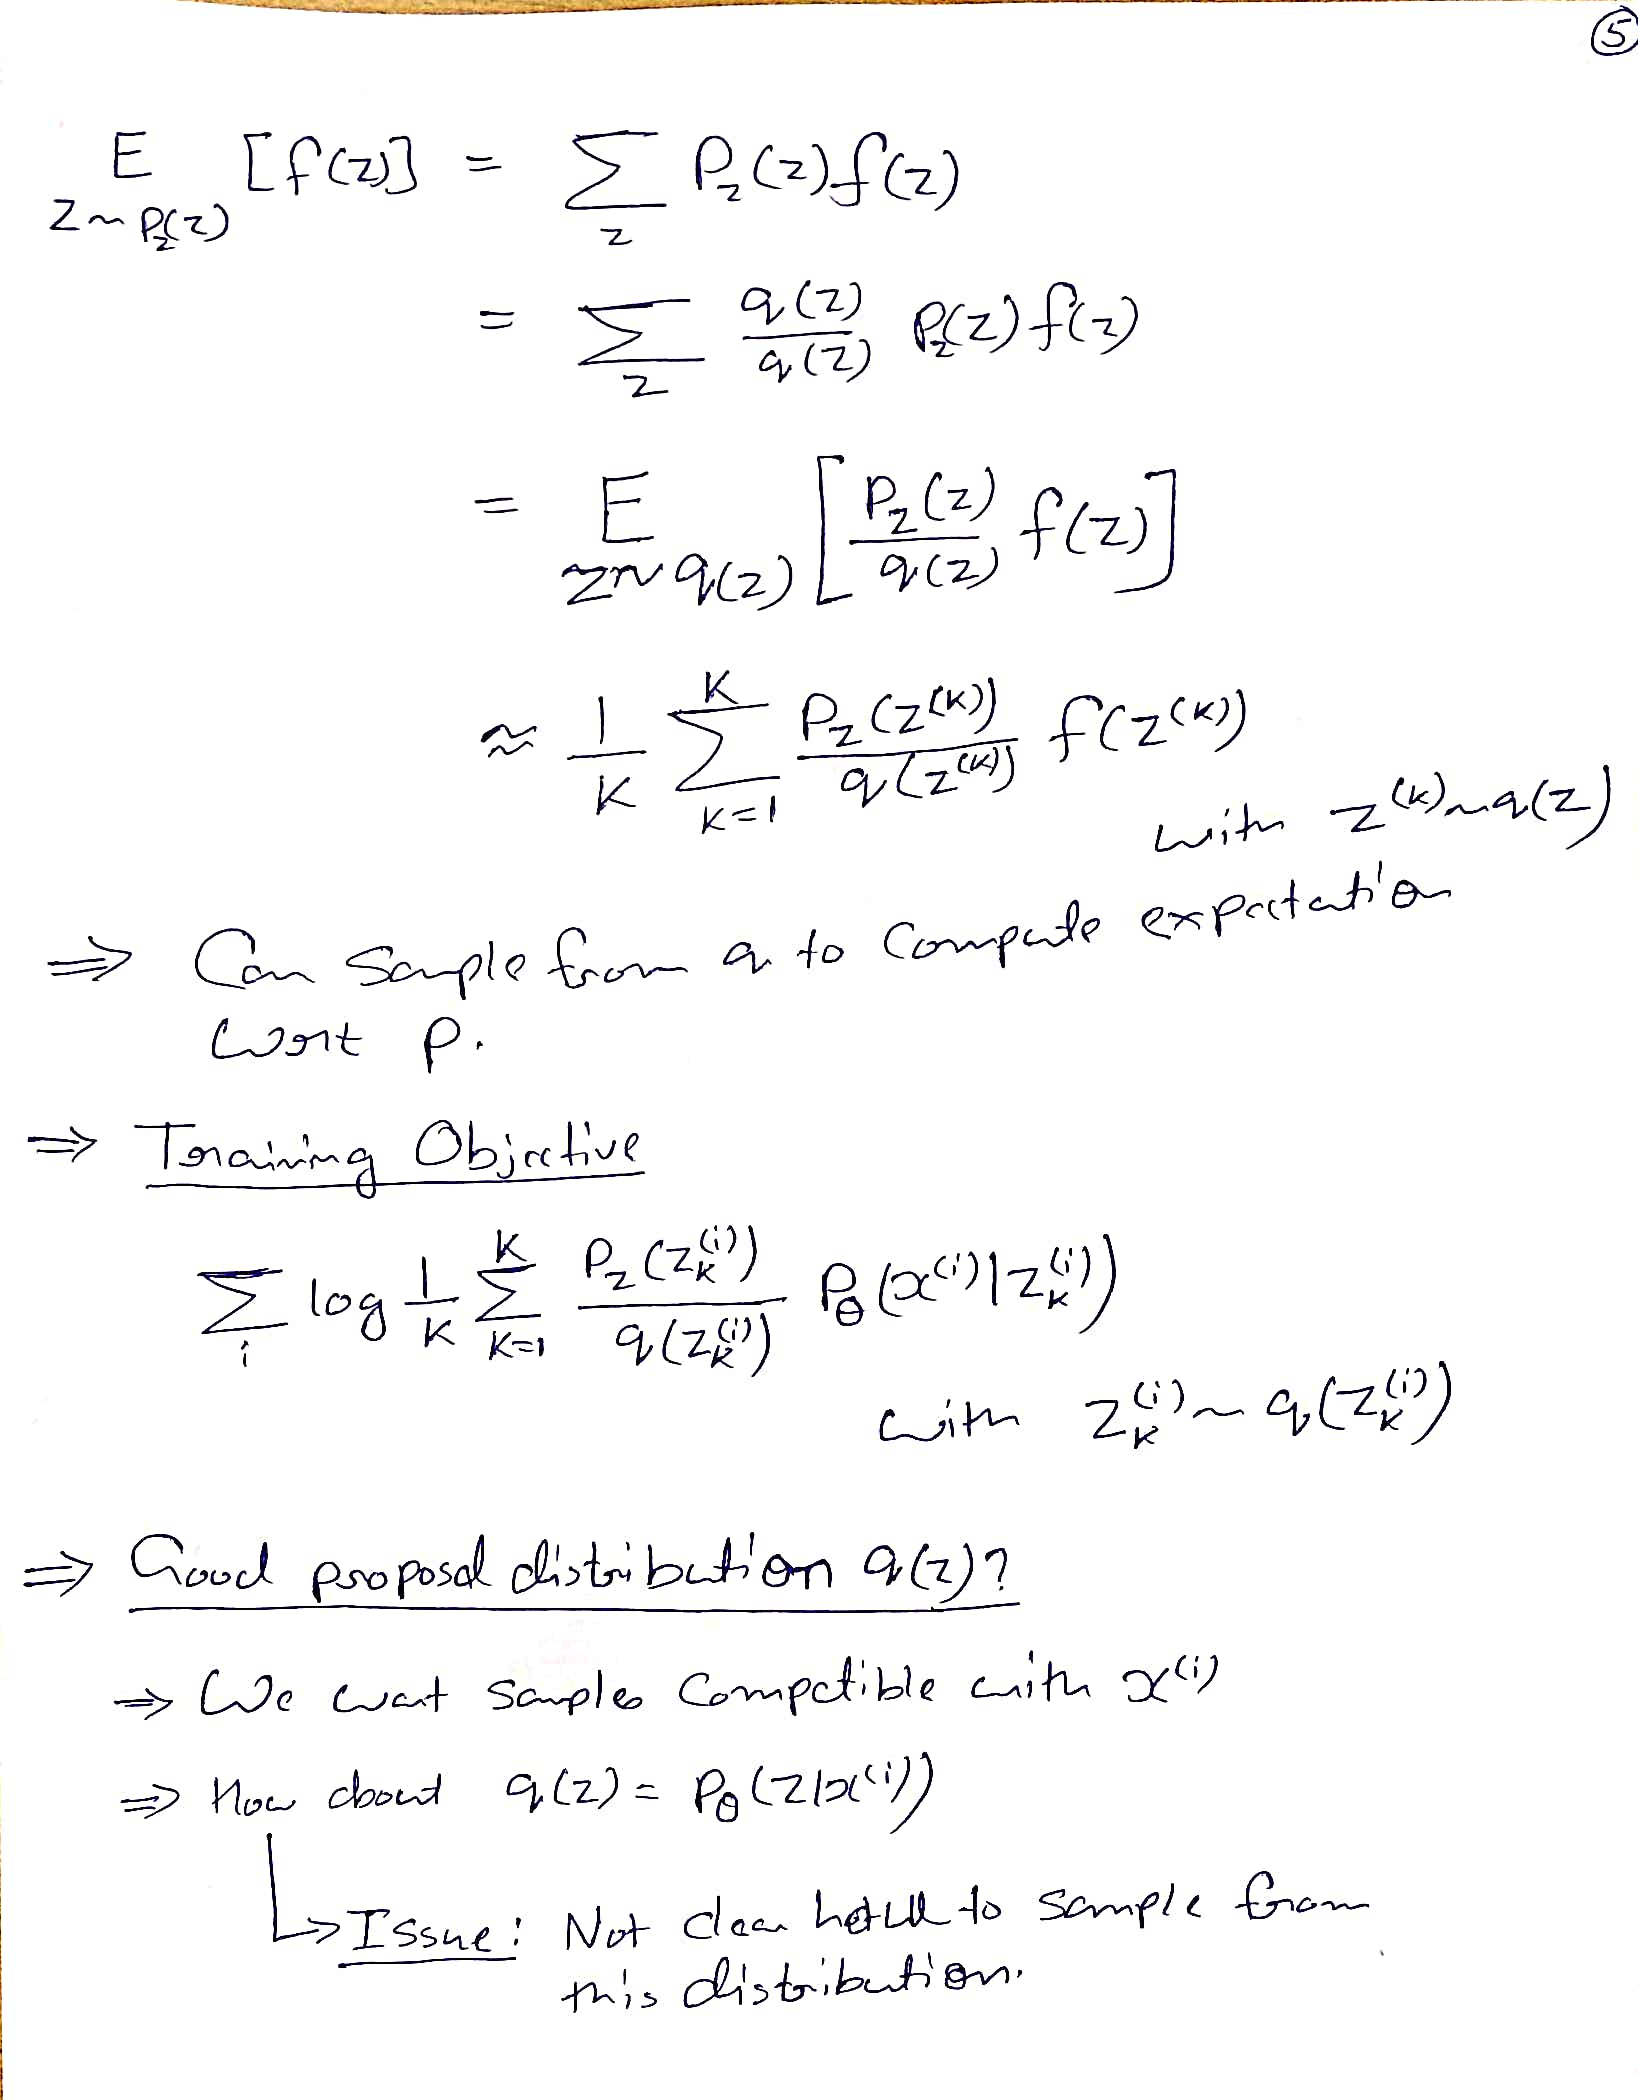 ⑤
E [f(z)] = Σ P_z(z) f(z)
z~P_z(z) z
= Σ q(z)/q(z) P_z(z) f(z)
z
= E [P_z(z)/q(z) f(z)]
z~q(z)
≈ 1/K Σ_{k=1}^{K} P_z(z^(k))/q(z^(k)) f(z^(k))
with z^(k) ~ q(z)
⇒ Can sample from q to compute expectation
wrt p.
⇒ Training Objective
Σ_i log 1/K Σ_{k=1}^{K} P_z(z_k^(i))/q(z_k^(i)) P_θ(x^(i)|z_k^(i))
with z_k^(i) ~ q(z_k^(i))
⇒ Good proposal distribution q(z)?
⇒ We want samples compatible with x^(i)
⇒ How about q(z) = P_θ(z|x^(i))
↳ Issue: Not clear how to sample from
this distribution.